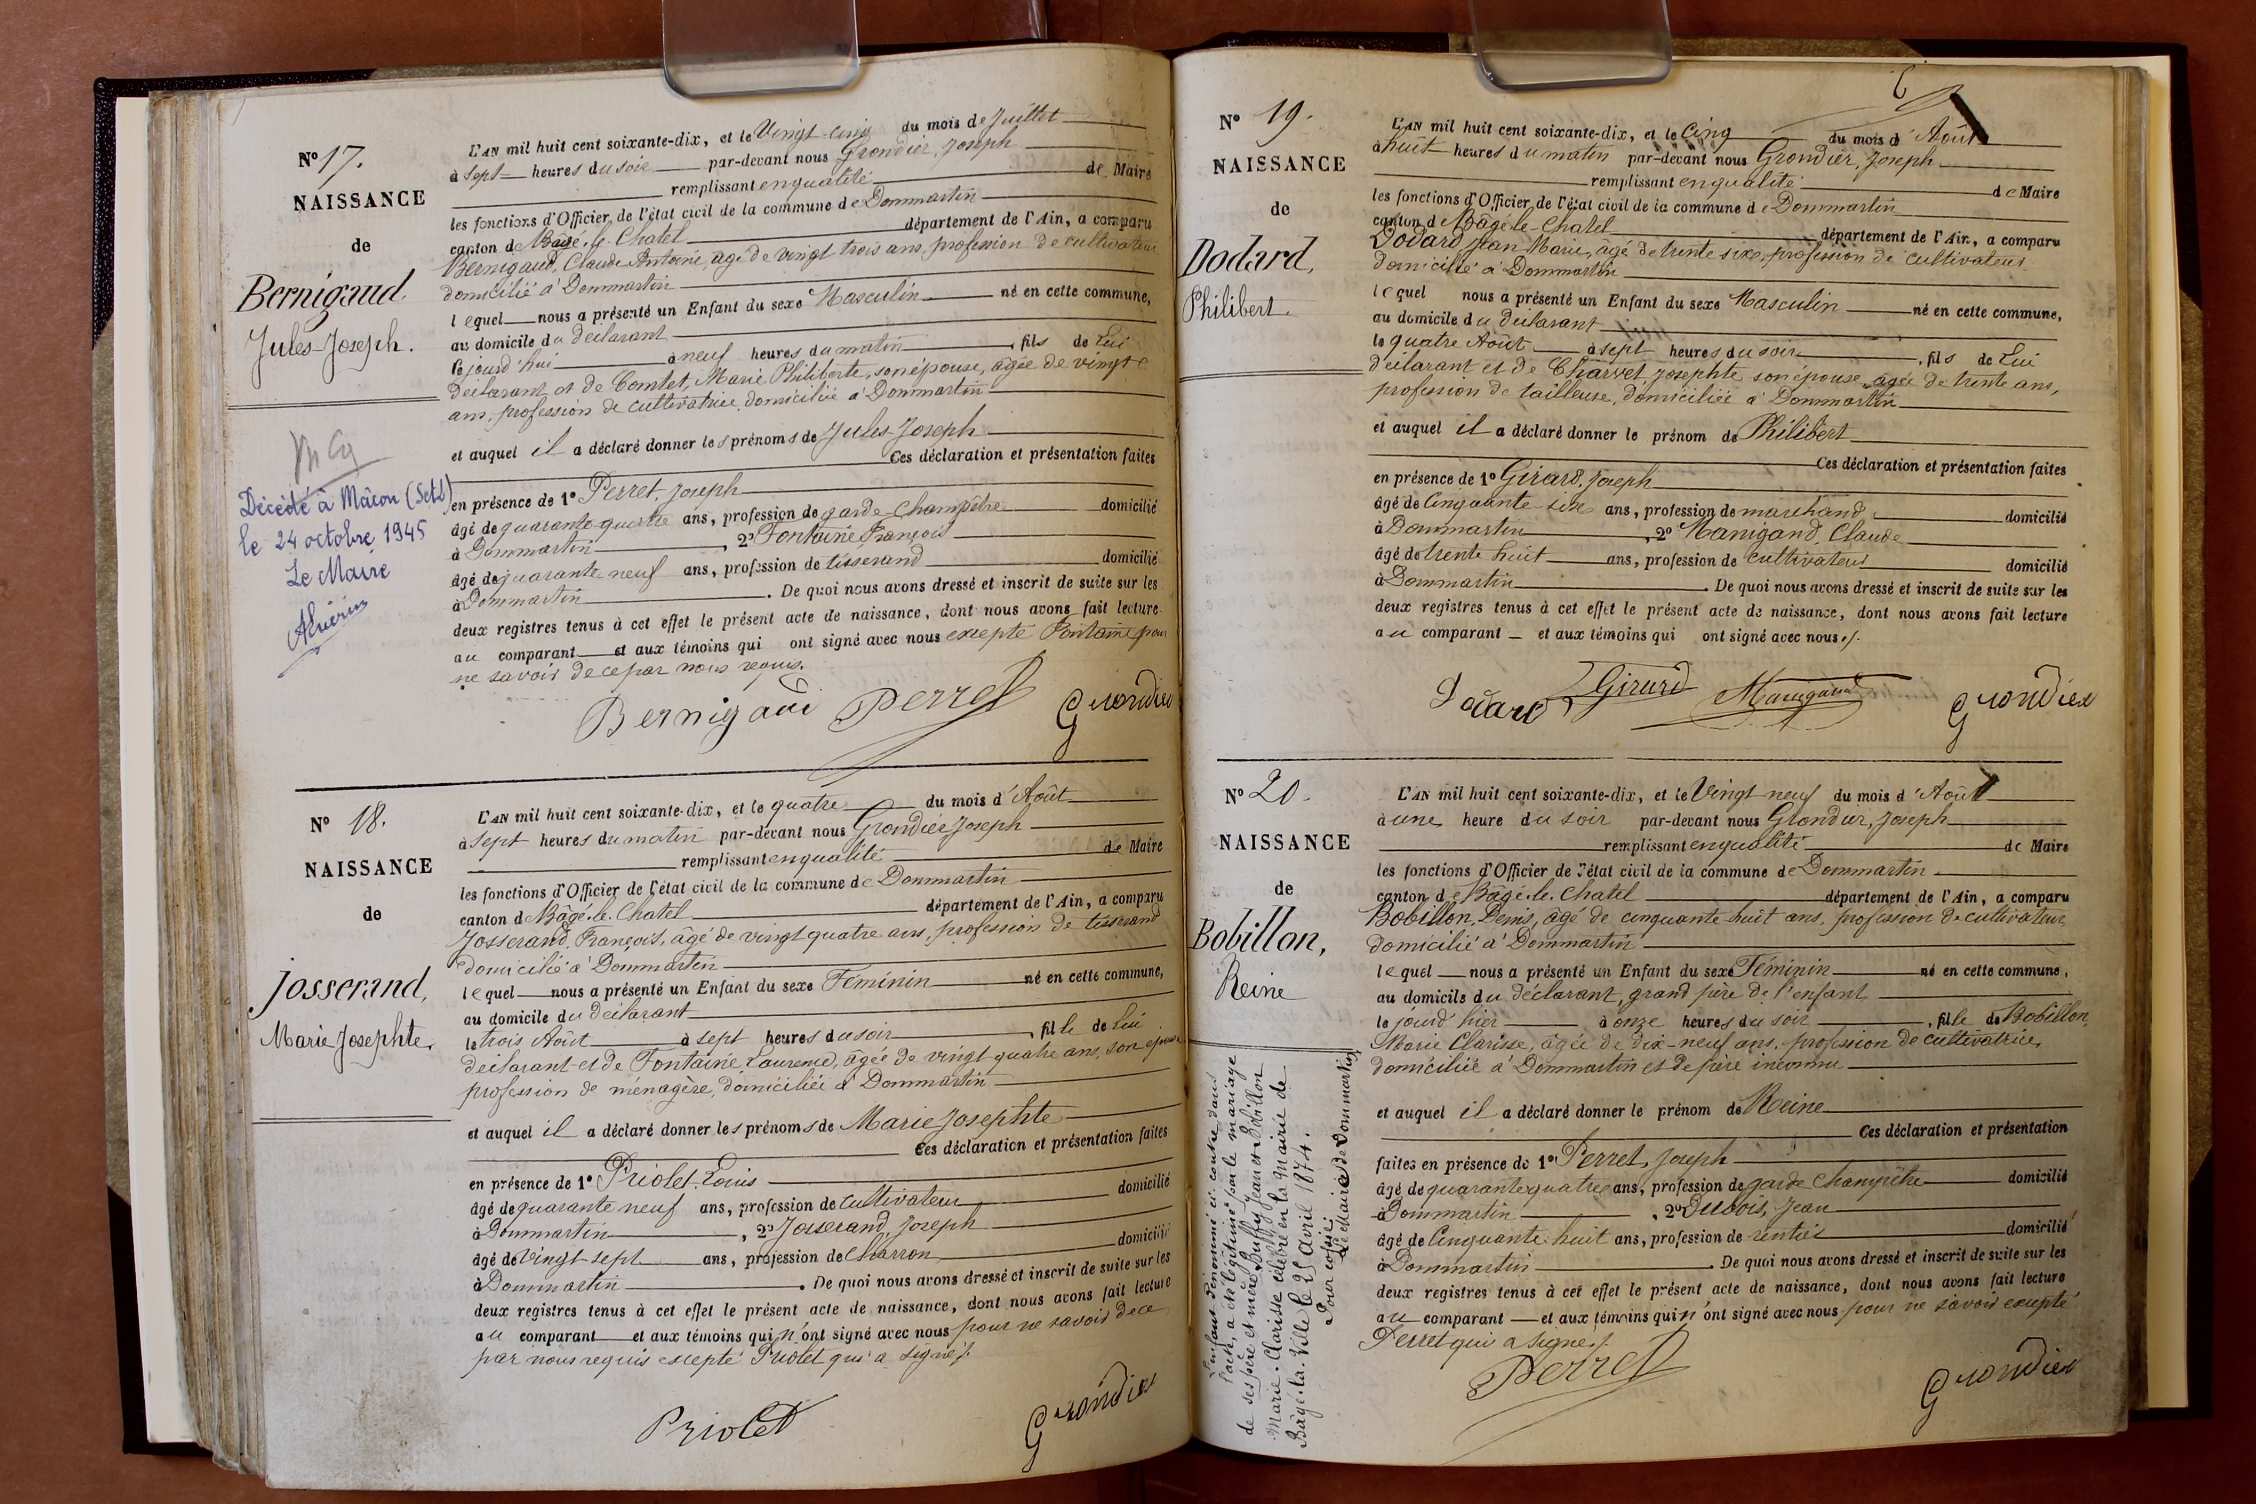 N° 17.
NAISSANCE
de
Bernigaud
Jules-Joseph.
Décédé à Mâcon (S et L)
le 24 octobre 1945
Le Maire
L'AN mil huit cent soixante-dix, et le Vingt-cinq du mois de Juillet
à sept heures du soir par-devant nous Grondier, Joseph
remplissant en qualité de Maire
les fonctions d'Officier de l'état civil de la commune de Dommartin
canton de Bâgé-le-Chatel département de l'Ain, a comparu
Bernigaud, Claude Antoine, âgé de vingt trois ans, profession de cultivateur
domicilié à Dommartin
lequel nous a présenté un Enfant du sexe Masculin né en cette commune,
au domicile du déclarant
le jourd'hui à neuf heures du matin, fils de Lui
déclarant et de Comtet, Marie Philiberte, son épouse, âgée de vingt
ans, profession de cultivatrice, domiciliée à Dommartin
et auquel il a déclaré donner les prénoms de Jules-Joseph
Ces déclaration et présentation faites
en présence de 1° Perret, Joseph
âgé de quarante-quatre ans, profession de garde-Champêtre domicilié
à Dommartin, 2° Fontaine François
âgé de quarante-neuf ans, profession de tisserand domicilié
à Dommartin. De quoi nous avons dressé et inscrit de suite sur les
deux registres tenus à cet effet le présent acte de naissance, dont nous avons fait lecture
au comparant et aux témoins qui ont signé avec nous excepté Fontaine pour
ne savoir de ce par nous requis.
Bernigaud Perret Grondier
N° 18.
NAISSANCE
de
Josserand,
Marie Josephte.
L'AN mil huit cent soixante-dix, et le quatre du mois d'Août
à sept heures du matin par-devant nous Grondier Joseph
remplissant en qualité de Maire
les fonctions d'Officier de l'état civil de la commune de Dommartin
canton de Bâgé-le-Chatel département de l'Ain, a comparu
Josserand, François, âgé de vingt quatre ans, profession de tisserand
domicilié à Dommartin
lequel nous a présenté un Enfant du sexe Féminin né en cette commune,
au domicile du déclarant
le trois Août à sept heures du soir, fille de Lui
déclarant et de Fontaine, Laurence, âgée de vingt quatre ans, son épouse
profession de ménagère, domiciliée à Dommartin
et auquel il a déclaré donner les prénoms de Marie Josephte
Ces déclaration et présentation faites
en présence de 1° Priolet, Louis
âgé de quarante neuf ans, profession de cultivateur domicilié
à Dommartin, 2° Josserand, Joseph
âgé de vingt-sept ans, profession de Charron domicilié
à Dommartin. De quoi nous avons dressé et inscrit de suite sur les
deux registres tenus à cet effet le présent acte de naissance, dont nous avons fait lecture
au comparant et aux témoins qui n'ont signé avec nous pour ne savoir de ce
par nous requis excepté Priolet qui a signé./.
Priolet Grondier
N° 19.
NAISSANCE
de
Dodard,
Philibert.
L'AN mil huit cent soixante-dix, et le Cinq du mois d'Août
à huit heures du matin par-devant nous Grondier, Joseph
remplissant en qualité de Maire
les fonctions d'Officier de l'état civil de la commune de Dommartin
canton de Bâgé-le-Chatel département de l'Ain, a comparu
Dodard Jean Marie, âgé de trente six, profession de cultivateur
domicilié à Dommartin
lequel nous a présenté un Enfant du sexe Masculin né en cette commune,
au domicile du déclarant
le quatre Août à sept heures du soir, fils de Lui
déclarant et de Charvet Josephte, son épouse, âgée de trente ans,
profession de tailleuse, domiciliée à Dommartin
et auquel il a déclaré donner le prénom de Philibert
Ces déclaration et présentation faites
en présence de 1° Girard, Joseph
âgé de Cinquante-six ans, profession de marchand domicilié
à Dommartin, 2° Manigand, Claude
âgé de trente huit ans, profession de cultivateur domicilié
à Dommartin. De quoi nous avons dressé et inscrit de suite sur les
deux registres tenus à cet effet le présent acte de naissance, dont nous avons fait lecture
au comparant et aux témoins qui ont signé avec nous./.
Dodard Girard Manigand Grondier
N° 20.
NAISSANCE
de
Bobillon,
Reine
L'enfant dénommé ci-contre dans
l'acte, a été légitimé par le mariage
de ses père et mère Buffy Jean et Bobillon
Marie-Clarisse célébré en la Mairie de
Bâgé-la-Ville le 25 Avril 1874.
Pour copie:
Le Maire de Dommartin
L'AN mil huit cent soixante-dix, et le Vingt neuf du mois d'Août
à une heure du soir par-devant nous Grondier, Joseph
remplissant en qualité de Maire
les fonctions d'Officier de l'état civil de la commune de Dommartin
canton de Bâgé-le-Chatel département de l'Ain, a comparu
Bobillon, Denis, âgé de cinquante huit ans, profession de cultivateur
domicilié à Dommartin
lequel nous a présenté un Enfant du sexe Féminin né en cette commune,
au domicile du déclarant, grand père de l'enfant
le jourd'hier à onze heures du soir, fille de Bobillon
Marie Clarisse, âgée de dix-neuf ans, profession de cultivatrice,
domiciliée à Dommartin et de père inconnu
et auquel il a déclaré donner le prénom de Reine
Ces déclaration et présentation
faites en présence de 1° Perret, Joseph
âgé de quarante quatre ans, profession de garde Champêtre domicilié
à Dommartin, 2° Dubois, Jean
âgé de Cinquante huit ans, profession de rentier domicilié
à Dommartin. De quoi nous avons dressé et inscrit de suite sur les
deux registres tenus à cet effet le présent acte de naissance, dont nous avons fait lecture
au comparant et aux témoins qui n'ont signé avec nous pour ne savoir excepté
Perret qui a signé./.
Perret Grondier